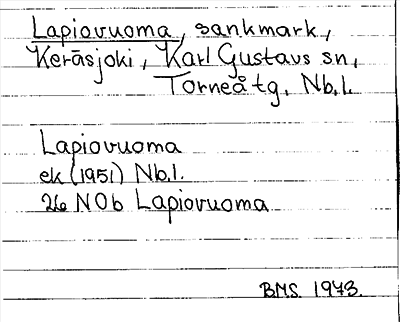 Lapiovuoma, sankmark,
Keräsjoki, Karl Gustavs sn,
Torneå tg, Nb.l.
Lapiovuoma
ek (1951) Nb.l.
26 NOb Lapiovuoma
BMS. 1973.